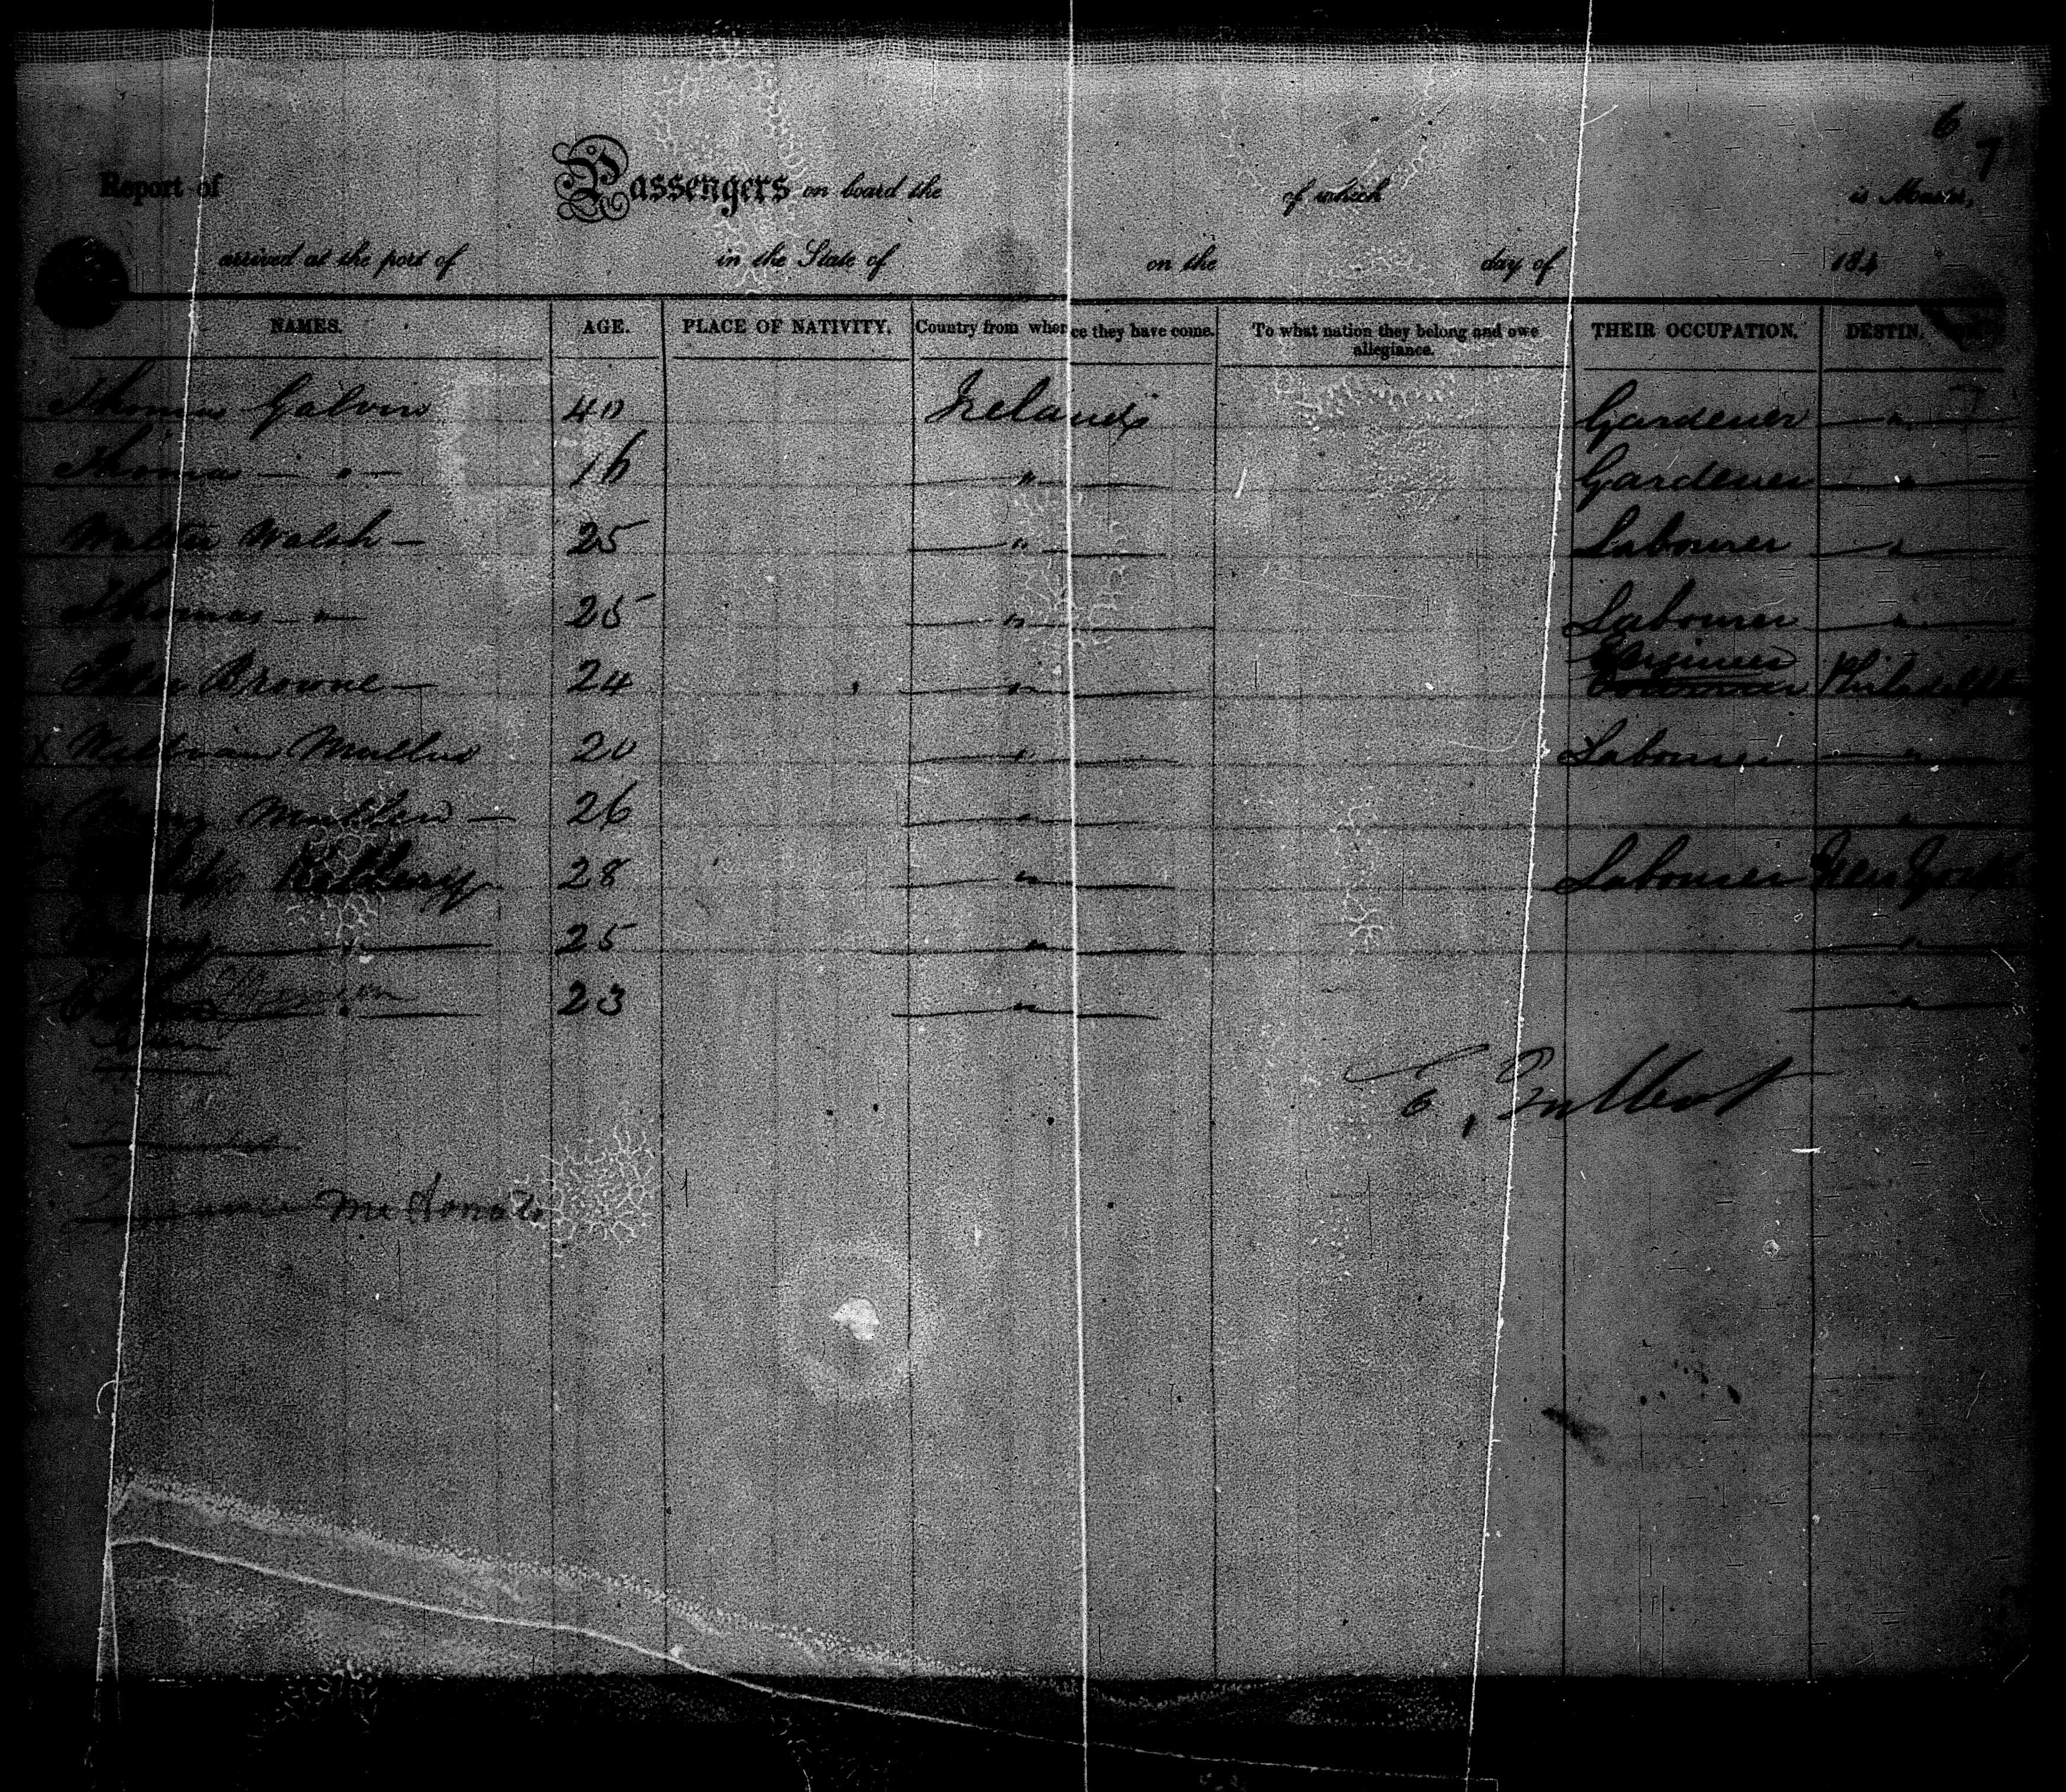 6
7
Report of Passengers on board the of which is Master,
arrived at the port of in the State of on the day of 184
NAMES. AGE. PLACE OF NATIVITY. Country from whence they have come. To what nation they belong and owe allegiance. THEIR OCCUPATION. DESTIN.
Thomas Galvin 40 Ireland Gardener — " —
Thomas — " — 16 — " — Gardener — " —
Walter Walsh — 25 — " — Labourer — " —
Thomas — " — 25 — " — Labourer — " —
Browne — 24 — " — Engineer Philadelphia
X William Mullen 20 — " — Labourer — " —
Mary Mullen — 26 — " — "
28 — " — Labourer New York
— " — 25 — " — — " —
— " — 23 — " — — " —
McDonald